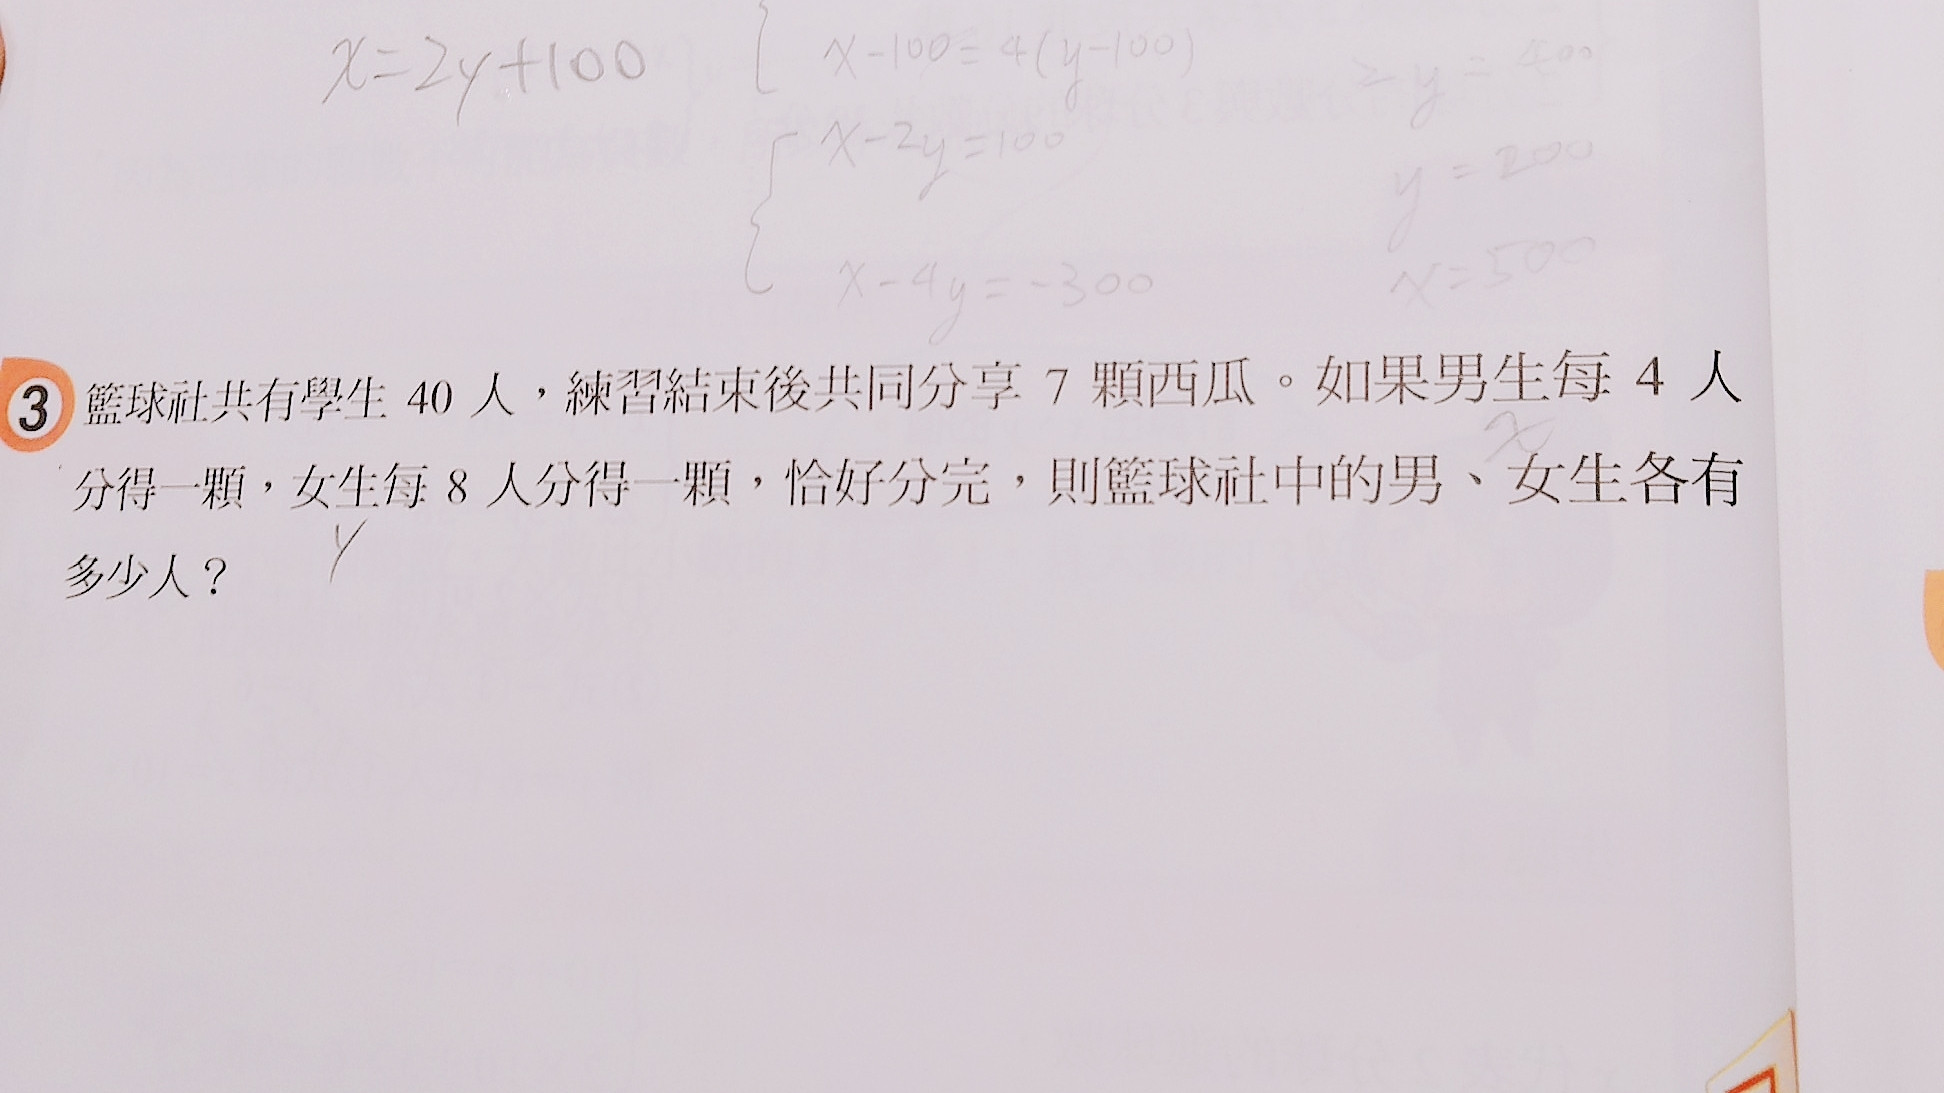 x=2y+100
x-100=4(y-100)
x-2y=100
x-4y=-300
2y=400
y=200
x=500
3 籃球社共有學生 40 人，練習結束後共同分享 7 顆西瓜。如果男生每 4 人
x
分得一顆，女生每 8 人分得一顆，恰好分完，則籃球社中的男、女生各有
y
多少人？